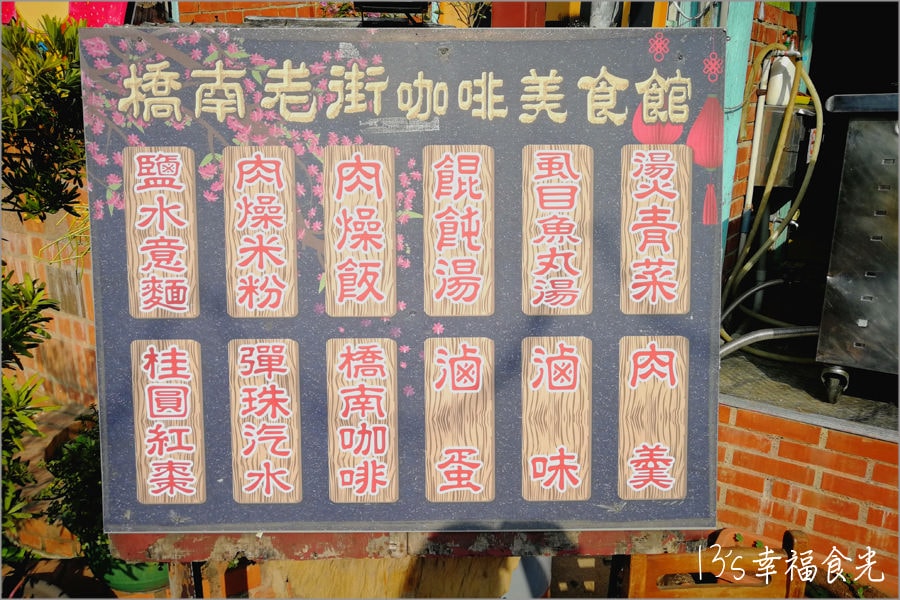 橋南老街咖啡美食館
鹽水意麵
肉燥米粉
肉燥飯
餛飩湯
虱目魚丸湯
湯燙青菜
桂圓紅棗
彈珠汽水
橋南咖啡
滷蛋
滷味
肉羹
13's幸福食光